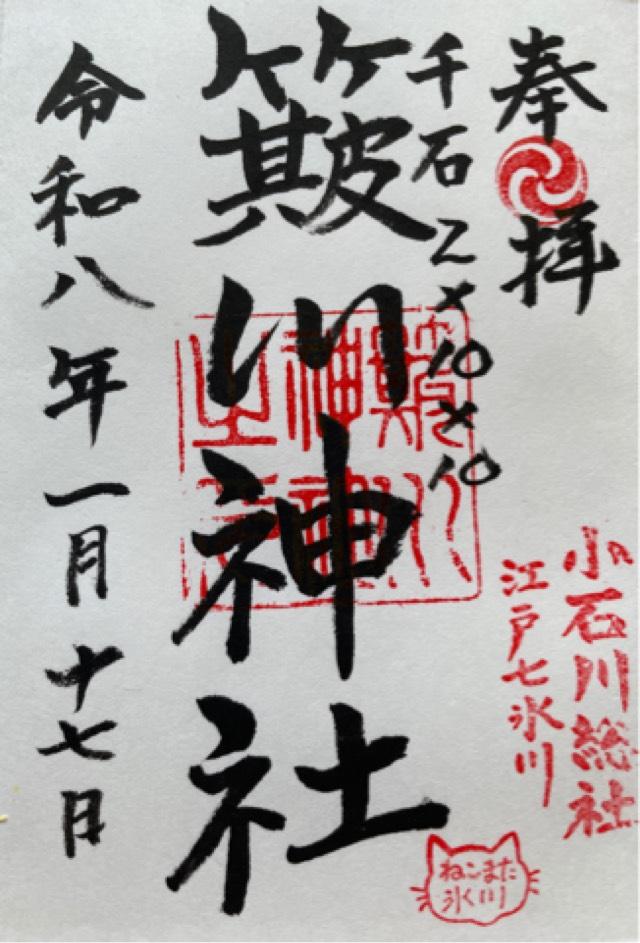 奉拝
小石川総社
江戸七氷川
千石2×10×10
簸川神社
簸川神社之
令和八年一月十七日
ねこまた
氷川